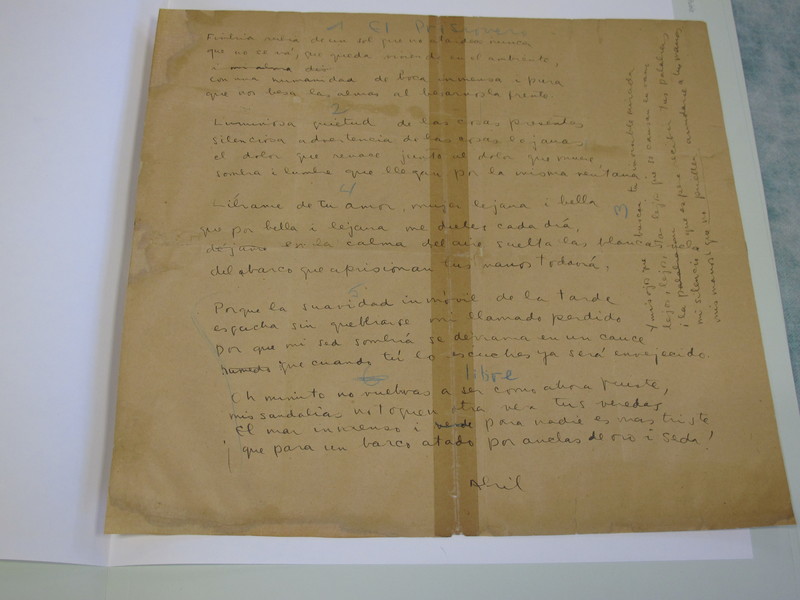 1 El Prisionero
sol que no atardece nunca
que no se vá, que queda en el ambiente,
i mi alma
con una humanidad de boca inmensa i pura
que nos besa las almas al besarnos la frente.
2
Luminosa quietud de las cosas presentes
silenciosa advertencia de las cosas lejanas
el dolor que renace junto al dolor que muere
sombra i lumbre que llegan por la misma ventana.
4
Líbrame de tu amor, mujer lejana i bella
que por bella i lejana me dueles cada día,
déjame en la calma del aire suelta las blancas
del barco que aprisionan tus manos todavía,
5
Porque la suavidad inmóvil de la tarde
escucha sin quebrarse mi llamado perdido
Por que mi sed sombría se derrama en un cauce
que cuando tú lo escuches ya será envejecido.
6 libre
Oh minuto no vuelvas a ser como ahora fueste,
mis sandalias no toquen otra vez tus veredas
El mar inmenso i verde para nadie es mas triste
¡que para un barco atado por anclas de oro i seda!
Abril
3
Y mis ojos que buscan tu mirada
lejos, lejos, tan lejos que se cansan
i la palabra que espera recibir tus palabras
mi silencio
mis manos que no pueden anudarse a tus manos